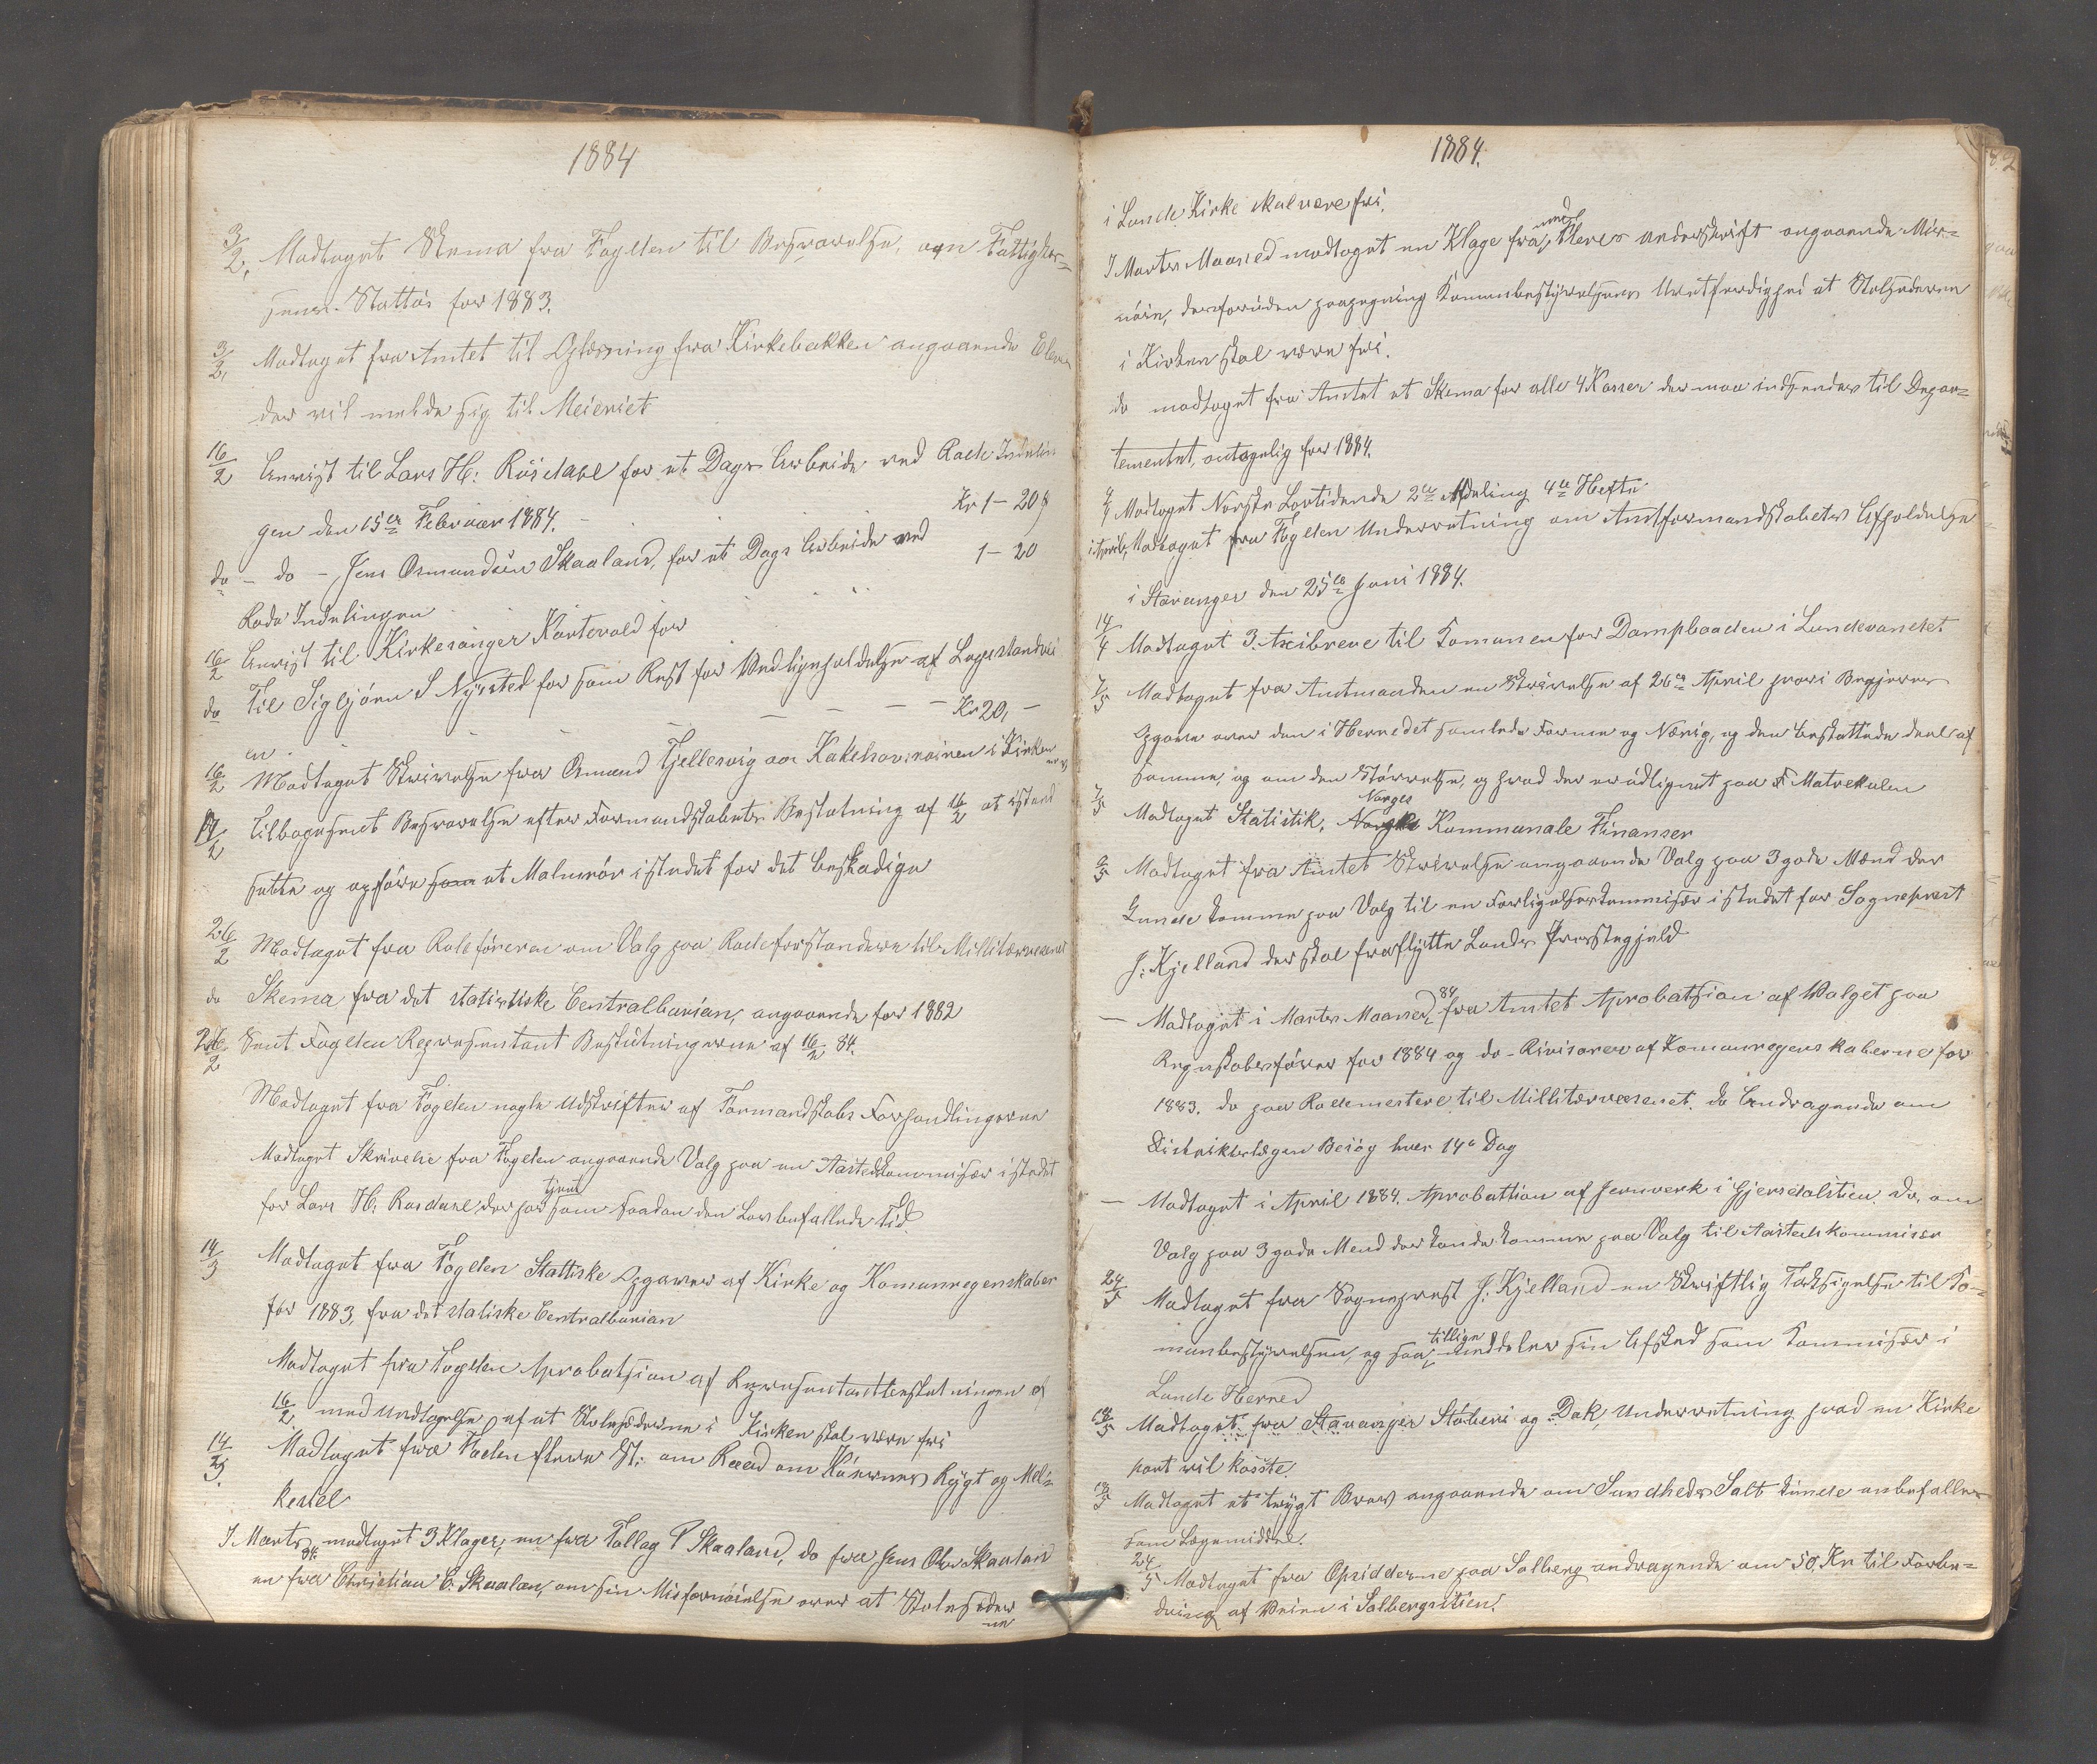 1884
3/2. Modtaget Skema fra Fogden til Besvarelse, om Fattigker-
senes Stattus for 1883.
3/2. Modtaget fra Amtet til Oplæsning fra Kirkebakken angaaende Elever
der vil melde sig til Meieriet
16/2 Anvist til Lars H: Rusdahl for et Dags Arbeide ved Rode Indelin
gen den 15de Februar 1884. Kr 1-20
do - do - Jens Osmundsen Skaaland, for et Dags Arbeide ved
Rode Indelingen 1-20
16/2 Anvist til Kirkesanger Kartevold for
do Til Sigbjørn S Nysted for som Rest for Vedligeholdelse af Lagestandvei
en - - - - Kr 20, -
16/2 Modtaget Skrivelse fra Omund Fjellesvig om Kakelovnrøiren i Kirken
17/2 Tilbagesent Besvarelse efter Formandskabets Beslutning af 16/2 at istand
sætte og opføre som et Malmrør istedet for det beskadige
26/2 Modtaget fra Roleføreren om Valg paa Rodeforstandere til Millitærvesenet
do Skema fra det statistiske Centralburian, angaaende for 1882
26/2 Sent Fogden Representant Beslutningerne af 16/2 84.
Modtaget fra Fogden nogle Udskrifter af Formandskabs Forhandlingerne
Modtaget Skrivelse fra Fogden angaaende Valg paa en Aastedskommisær istedet
for Lars H. Rusdahl, der har tjent som saadan den Lovbefallede Tid
14/3 Modtaget fra Fogden Stattiske Opgaver af Kirke og Komunregenskaber
for 1883, fra det statiske Centralburian
Modtaget fra Fogden Aprobatsion af Represantantbeslutningen af
16/2 med Undtagelse af at Stolesæderne i Kirken skal være fri
14/3. Modtaget fra Foden flere St: om Raad om Køernes Røgt og Mel-
kestel
I Marts 84. modtaget 3 Klager, en fra Tollag P Skaaland, do fra Jens Ols Skaaland
en fra Christian E. Skaalan, om sin Misfornøielse over at Stolesæder
ne
1884.
i Lunde Kirke skal være fri.
I Marts Maaned modtaget en Klage fra, med Fleres Underskrift angaaende Mis-
nøie, desforuden paapegning Komunbestyrelsens Uretferdighed at Stolsæderne
i Kirken skal være fri.
do modtaget fra Amtet et Skema for alle 4 Kasser der maa indsendes til Depar-
tementet, antagelig for 1884.
Modtaget Norske Lovtidende 2de Afdeling 4de Hefte
i April, Modtaget fra Fogden Underretning om Amtformandskabets Afholdelse
i Stavanger den 25de Juni 1884.
14/4 Modtaget 3. Axibreve til Komunen for Dampbaaden i Lundevandet
7/5 Modtaget fra Amtmanden en Skrivelse af 26de April hvori Begjeres
Opgave over den i Herredet samlede Formue og Nærig, og den beskattede deel af
samme, og om den Størrelse, og hvad der er udlignet paa Matrekulen
7/5 Modtaget Statistik, Norges Kommunale Finanser
9/5 Modtaget fra Amtet Skrivelse angaaende Valg paa 3 gode Mænd der
kunde komme paa Valg til en Forligelseskommisær istedet for Sogneprest
J: Kjelland der skal fraflytte Lunds Prestegjeld
- Modtaget i Marts Maaned, 84 fra Amtet Aprobatsion af Valget paa
Regnskabsfører for 1884 og do - Rivisorer af Komunregenskaberne for
1883. do paa Rodemestere til Millitærvæsenet. do Andragende om
Distriktslægen Besøg hver 14e Dag
- Modtaget i April 1884. Aprobattion af Jernverk i Gjersdalstien. do, om
Valg paa 3 gode Mend der kunde komme paa Valg til Aastedskommisær
24/5 Modtaget fra Sogneprest J: Kjelland en Skriftlig Taksigelse til Ko-
munbestyrelsen, og han tillige meddeler sin Afsked som Kommisær i
Lunde Herred
Modtaget fra Stavanger Støberi og Dok, Underretning hvad en Kirke
port vil kosste.
Modtaget et trygt Brev angaaende om Sundheds Salt kunde anbefalles
som Lægemiddel.
24/5 Modtaget fra Opsidderne paa Solberg andragende om 50. Kr til Forbe-
dring af Veien i Solbergstien.